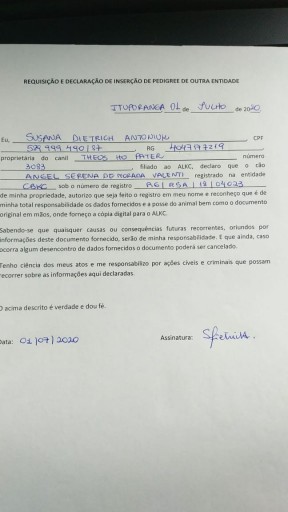 REQUISIÇÃO E DECLARAÇÃO DE INSERÇÃO DE PEDIGREE DE OUTRA ENTIDADE
ITUPORANGA 01 de JULHO de 2020
Eu, SUSANA DIETRICH ANTONIUK CPF
RG 4047197219
proprietaria do canil THEOS HO PATER número
3083, filiado ao ALKC, declaro que o cão
ANGEL SERENA DO MORADA VALENTI registrado na entidade
CBKC sob o número de registro RG/RSA/18/04023
de minha propriedade, autorizo que seja feito o registro em meu nome e reconheço que é de
minha total responsabilidade os dados fornecidos e a posse do animal bem como o documento
original em mãos, onde forneço a cópia digital para o ALKC.
Sabendo-se que quaisquer causas ou consequências futuras recorrentes, oriundos por
informações deste documento fornecido, serão de minha responsabilidade. E que ainda, caso
ocorra algum desencontro de dados fornecidos o documento poderá ser cancelado.
Tenho ciência dos meus atos e me responsabilizo por ações cíveis e criminais que possam
recorrer sobre as informações aqui declaradas.
O acima descrito é verdade e dou fé.
Data: 01/07/2020 Assinatura: